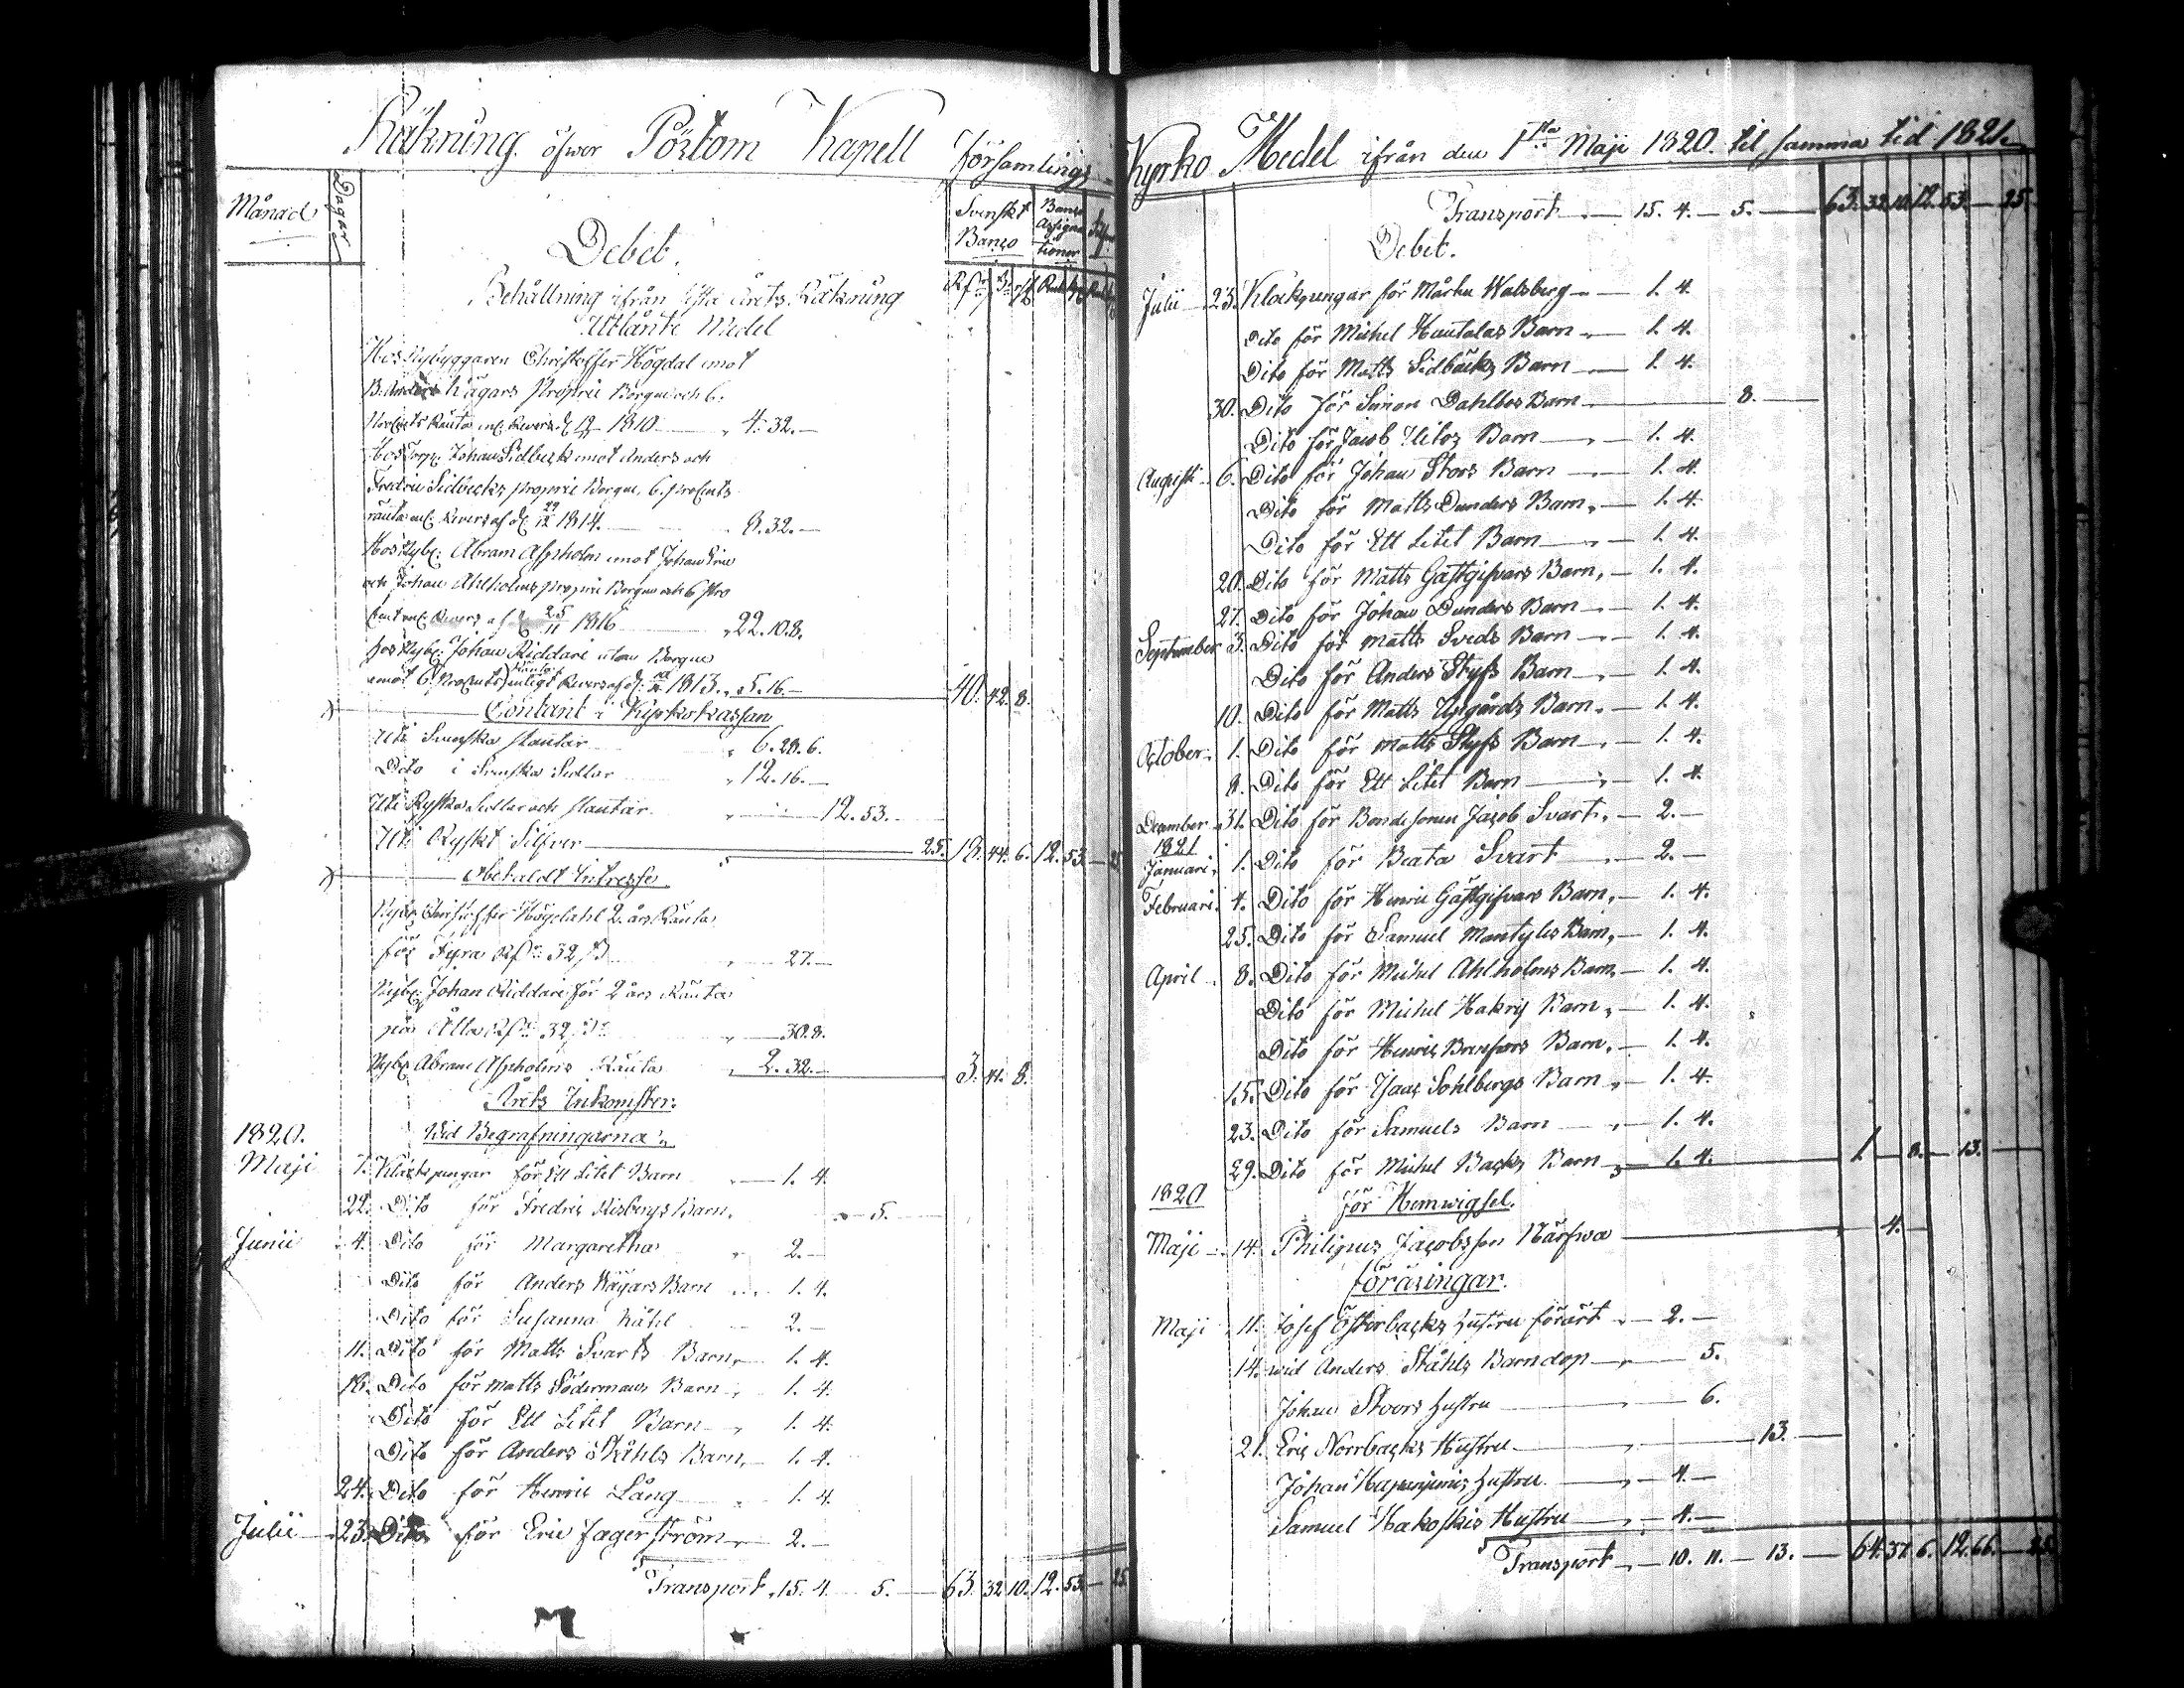 Räkning öfwer Pörtom Kapell Församlings
Månad Dagar
Svenskt Banco Banco Assignationer
Debet.
Behållning ifrån sista årets Räkning
Utlånte Medel
Hos Nybyggaren Christoffer Högdal emot
B: Anders Kågars proprie Borgen och 6.
Procents Ränta enl. Revers d. 1810 4: 32.—
Hos Torp: Johan Sidbeck emot Anders och
Fredric Sidbecks proprie Borgen, 6. proCents
ränta enl. Revers af d. 29/12 1814. 8. 32.—
Hos Nyb: Abram Aspholm emot Johan Eric
och Johan Ahlholms proprie Borgen och 6 Pro
Cent enl. Revers af d. 25/11 1816 22. 10. 8.
hos Nyb: Johan Riddare utan Borgen
emot 6. ProCents Ränta enligt Revers af d. 1813. 5. 16.— 40. 42. 8.
Contant i Kyrko Kassan
Uti Svenska plantar 6. 28. 6.
Dito i Svenska Sedlar 12. 16.—
Uti Ryska Sedlar och plantar 12. 53.
Uti Ryskt Silfver 25. 18. 44. 6. 12. 53.— 25
Obetaldt Intresse
Nyb: Christoffer Högdahl 2. års Ränta
för Fyra Rd 32 ß 27.—
Nyb: Johan Riddare för 2 års Ränta
på Åtta Rd 32 ß 30. 8.
Nyb: Abram Aspholms Ränta 2. 32.— 3. 41. 8.
Årets Inkomster:
1820. Wid Begrafningarna
Maji 7. Klockpengar för Ett Litet Barn 1. 4.
22. Dito för Fredric Risbergs Barn 5.
Junii 4. Dito för Margaretha 2.—
Dito för Anders Kågars Barn 1. 4.
Dito för Susanna Ståhl 2.—
11. Dito för Matts Svarts Barn 1. 4.
18. Dito för Matts Södermans Barn 1. 4.
Dito för Ett Litet Barn 1. 4.
Dito för Anders Ståhls Barn 1. 4.
24. Dito för Henric Lång 1. 4.
Julii 23. Dito för Eric Jagerström 2.—
Transport 15. 4. 5. 63. 32 10. 12. 53.— 25.
Kyrko Medel ifrån den 1sta Maji 1820. til samma tid 1821.
Transport 15. 4.— 5.— 63. 32. 10. 12. 53.— 25.
Debet.
Julii 23. Klockpengar för Marku Walsberg 1. 4.
Dito för Michel Hautalas Barn 1. 4.
Dito för Matts Sidbäcks Barn 1. 4.
30. Dito för Simon Dahlbos Barn 8.
Dito för Jacob Barn 1. 4.
Augusti 6. Dito för Johan Stors Barn 1. 4.
Dito för Matts Dunders Barn 1. 4.
Dito för Ett Litet Barn 1. 4.
20. Dito för Matts Gästgifvars Barn 1. 4.
27. Dito för Johan Dunders Barn 1. 4.
September 3. Dito för Matts Sveds Barn 1. 4.
Dito för Anders Styfs Barn 1. 4.
10. Dito för Matts Upgårds Barn 1. 4.
October 1. Dito för Matts Styfs Barn 1. 4.
8. Dito för Ett Litet Barn 1. 4.
December 31. Dito för Bondesonen Jacob Svart 2.—
1821
Januari 1. Dito för Beata Svart 2.—
Februari 4. Dito för Henric Gästgifvars Barn 1. 4.
25. Dito för Samuel Mantyles Barn 1. 4.
April 8. Dito för Michel Ahlholms Barn 1. 4.
Dito för Michel Barn 1. 4.
Dito för Henric Barn 1. 4.
15. Dito för Isaac Sohlbergs Barn 1. 4.
23. Dito för Samuels Barn 1. 4.
29. Dito för Michel Backs Barn 1. 4. 1.— 8.— 13.
1820 för Hemwigsel.
Maji 14. Philipus Jacobsson Närfwa 4.
föräringar.
Maji 11. Josef Österbacks Hustru förärt 2.—
14. wid Anders Ståhls Barndop 5.
Johan Stoors hustru 6.
21. Eric Norrbacks Hustru 13.
Johan hustru 4.—
Samuel Hakoskis Hustru 4.—
Transport 10. 11.— 13.— 64. 37. 6. 12. 66.— 25.